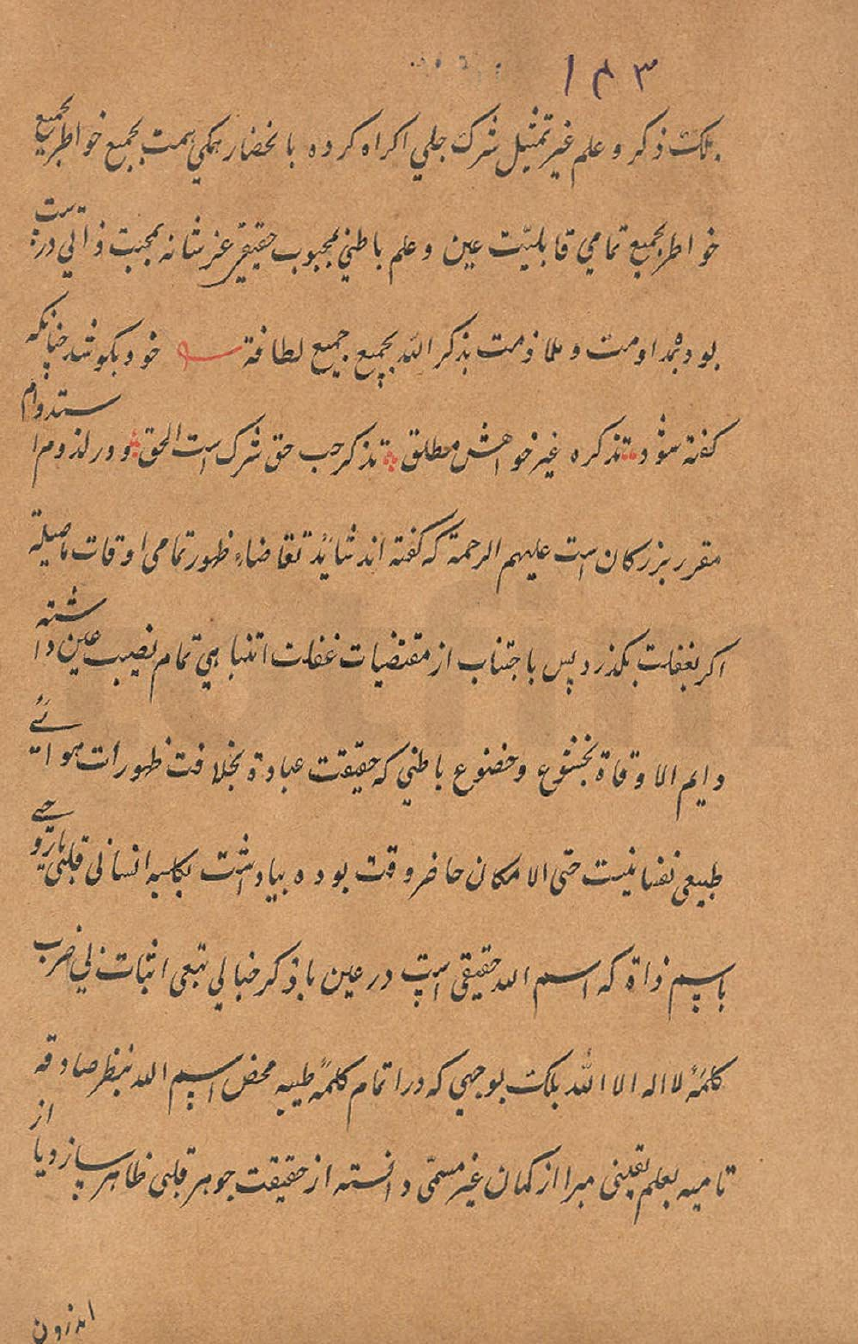 ۱۴۳
بلکه ذکر و علم غیر تمثیل شرک جلی اکراه کرده باحضار همکی همت بجمیع خواطر بجمیع
خواطر بجمیع تمامی قابلیّت عین و علم باطنی بمحبوب حقیقی عز شانه بمحبت ذاتی درست
بوده بمداومت و ملازمت بذکر الله بجمیع جمیع لطافة خود بکوشد چنانکه
کفته شود تذکره غیر خواهش مطلق تذکر حب حق شرک است الحق و در لزوم استدوام
مقرر بزرکان است علیهم الرحمة که کفته اند شاید تقاضاء ظهور تمامی اوقات
اکر بغفلت بکذرد پس باجتناب از مقتضیات غفلت انتباهی تمام نصیب عین داشته
دایم الاوقاة بخشوع و خضوع باطنی که حقیقت عبادة بخلافت ظهورات هوائے
طبیعی نفسانیست حتی الامکان حاضر وقت بوده بیادداشت انسانی قلبی
باسم ذاة که اسم الله حقیقی است در عین باذکر خیالی اثبات ضرب
کلمهٔ لا اله الا الله بلکه بوجهی که در اتمام کلمهٔ طیبه محض اسم الله بنظر صادقه
تامیه بعلم یقینی مبرا از کمان غیر مسمّی دانسته از حقیقت جوهر قلبی ظاهر سازد یا از
اندرون